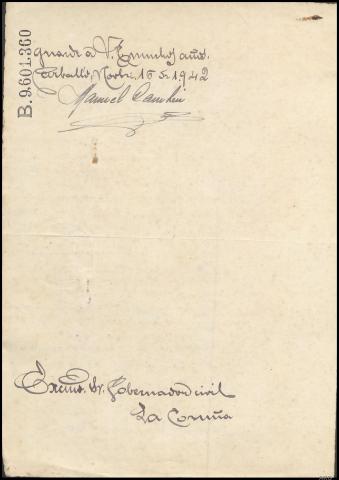 B.9.601.360
guarde a V. E. muchos años.
Carballo, Novbr. 16 de 1942
Manuel
Excmo. Sr. Gobernador civil
La Coruña